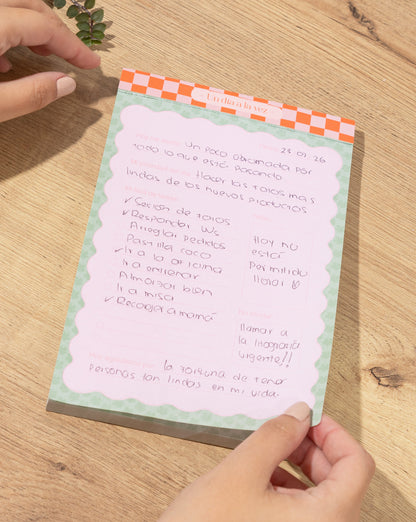 Un día a la vez
23 . 01 . 26
Un poco abrumada por
todo lo que está pasando
Hacer las fotos mas
lindas de los nuevos productos
✓ Sección de fotos
✓ Responder Ws
Arreglar pedidos
Pastilla coco
✓ Ir a la oficina
Ir a entrenar
Almorzar bien
Ir a misa
✓ Recoger a mamá
Hoy no
está
Permitido
llorar
llamar a
la
urgente!!
la fortuna de tener
personas tan lindas en mi vida.